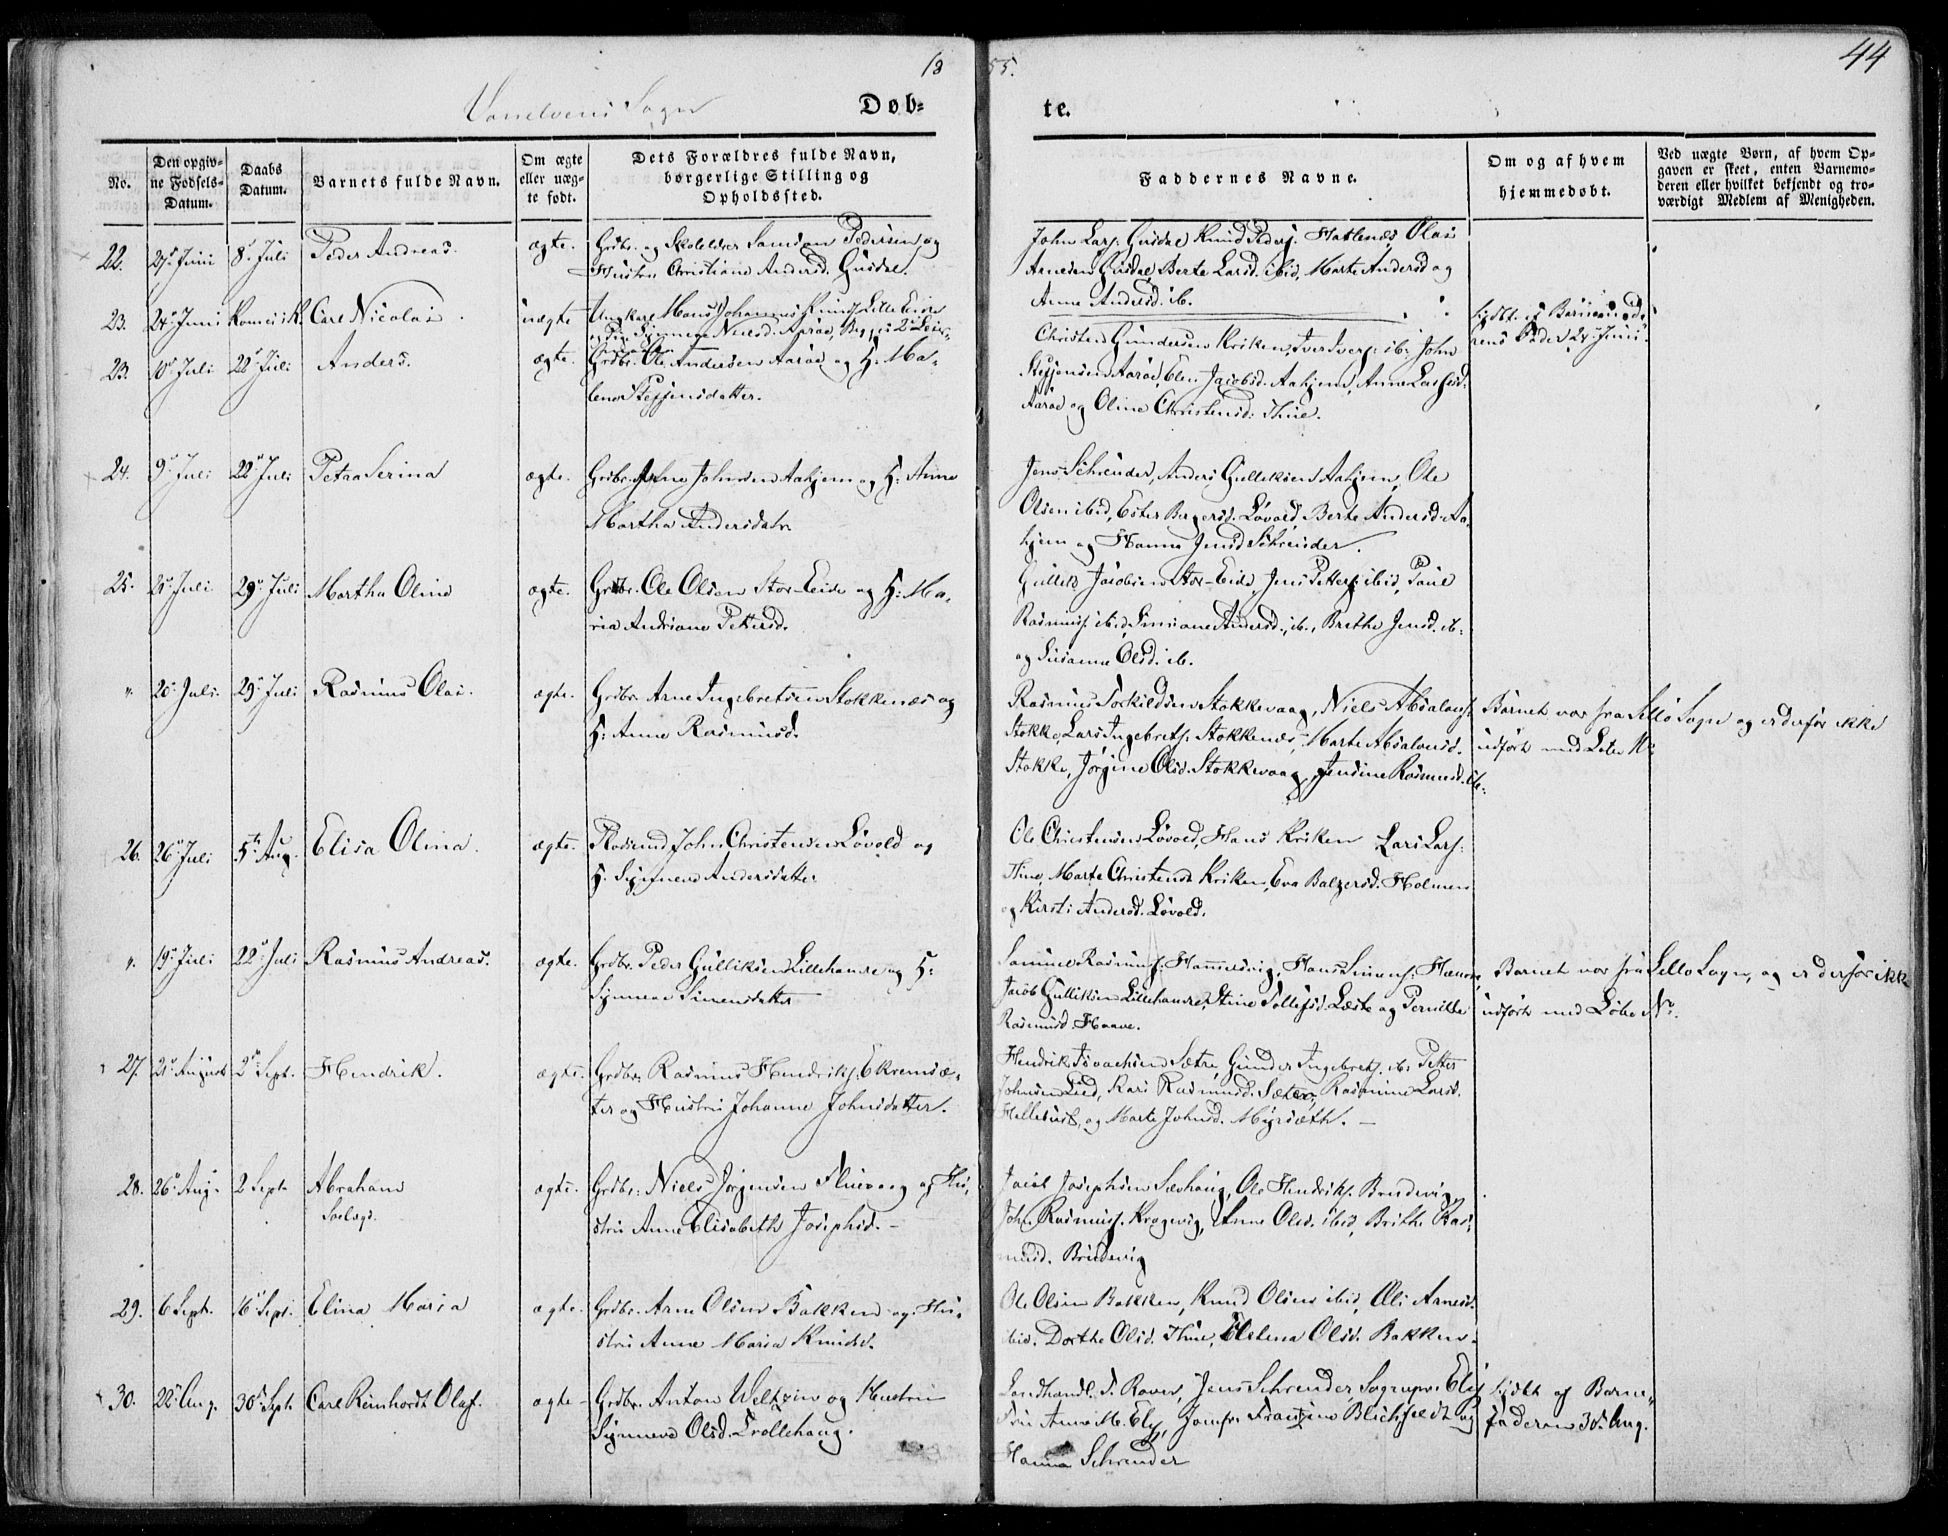 18 55.
44
Vanelvens Sogn
Døb- te.
No.
Den opgiv-
ne Fødsels-
Datum.
Daabs
Datum.
Barnets fulde Navn.
Om ægte
eller uæg-
te født.
Dets Forældres fulde Navn,
borgerlige Stilling og
Opholdssted.
Faddernes Navne.
Om og af hvem
hjemmedøbt.
Ved uægte Børn, af hvem Op-
gaven er skeet, enten Barnemo-
deren eller hvilket bekjendt og tro-
værdigt Medlem af Menigheden.
22. Juni 8 Juli Peder Andreas. ægte. Grdbr. og Skolelærer Samson Pedersen og
Hustru Christiane Andersd. Gusdal.
John Lars. Gusdal Knud Peders. Hatlenæs, Olai
Arnesen Gusdal, Berte Larsd. ibid, Marte Andersd og
Anne Andersd. ib.
23. 24 Juni Carl Nicolai. uægte Ungkarl Mons Johannes Knuds. Lille Eide
og Pige Synneve Nielsd. Aarøe, Begges 2
hjdbt. af Barnemode-
rens Fader 24 Juni.
23. 10 Juli 22 Juli Anders. ægte. Grdbr. Ole Andersen Aarøe og H. Ma-
lene Steffensdatter.
Christen Gundersen Kriken, Iver Ivers. ib. John
Steffensen Aarøe, Elen Jacobsd. Aahjem, Anne Larsd.
Aarøe og Oline Christensd. Thue.
24. 9 Juli 22 Juli Petra Serina ægte. Grdbr. Arne Johnsen Aahjem og H. Anne
Martha Andersdatr.
Jens Schreuder, Anders Gulleksen Aahjem, Ole
Olsen ibid, Ester Birgersd. Løvold, Berte Andersd. Aa-
hjem og Hanna Jensd Schreuder.
25. Juli 29 Juli Martha Oline ægte. Grdbr. Ole Olsen Stor-Eide og H. Ma-
ria Andriane Pettersd.
Gullik Jacobsen Stor-Eide, Jens Petters. ibid, Paul
Rasmuss. ibid, Simiane Andersd. ib., Brithe Jensd. ib.
og Susanne Olsd. ib.
" 20 Juli. 29 Juli Rasmus Olai. ægte. Grdbr. Arne Ingebretsen Stokkenæs og
H. Anne Rasmusd.
Rasmus Torkildsen Stokkevaag, Niels Absalons.
Stokke, Lars Ingebrets. Stokkenæs, Marte Absalonsd.
Stokke, Jørgine Olsd. Stokkevaag, Jensine Rasmusd. ib.
Barnet var fra Sellø Sogn og er derfor ikke
udført med Løbe No
26. 26 Juli 5te Aug. Elisa Olina. ægte. Pladsmd John Christensen Løvold og
H. Synneve Andersdatter
Ole Christensen Løvold, Hans Kriken Lars Lars.
Thue, Marte Christensd. Kriken, Eva Balzersd. Holmen
og Kirsti Andersd. Løvold.
" 19 Juli 22 Juli Rasmus Andreas. ægte. Grdbr. Peder Gulliksen Lillehamre og H.
Synneve Simensdatter
Samuel Rasmuss. Hammersvig, Hans Simens.
Jacob Gulliksen Lillehamre, Stine Tollefsd. Læste og Pernille
Rasmusd. Haave.
Barnet var fra Sellø Sogn, og er derfor ikke
udført med Løbe No.
27. August 2 Sept. Hendrik. ægte. Grdbr. Rasmus Hendriks. Ekremsæ-
ter og Hustru Johanne Johnsdatter.
Hendrik Sætre, Gunder Ingebrets. ib. Petter
Johnsen Lied, Kari Rasmusd. Sæter, Rasmine Larsd.
og Marte Johnsd. Myrsæth.
28. 26 Aug. 2 Sept. Abraham
ægte. Grdbr. Niels Jørgensen og Hu-
stru Anne Elisabeth Josephsd.
Jacob Josephsen Sævhoug, Ole Hendriks. Brudevig,
John Rasmuss. Kragevig, Anne Olsd. ibid, Brithe Ras-
musd. Brudevig
29. 6 Sept. 16 Sept. Elina Maria ægte. Grdbr. Arne Olsen Bakken og Hu-
stru Anne Maria Knudsd.
Ole Olsen Bakken, Knud Olsen ibid, Oli Arnesd.
ibid. Dorthe Olsd. Thue, Elena Olsd. Bakken.
30. 22 Aug. 30 Sept. Carl Reinhardt Olaf. ægte Grdbr. Anton Weltzin og Hustru
Synneve Olsd. Trollehaug.
Landhandl. T. Raven, Jens Schreuder Sognepr. Ely
Fru Anne M. Ely, Jomfr. Frantzine Blichfeldt og
Hanna Schreuder
hjdbt af Barne-
faderen 30 Aug.